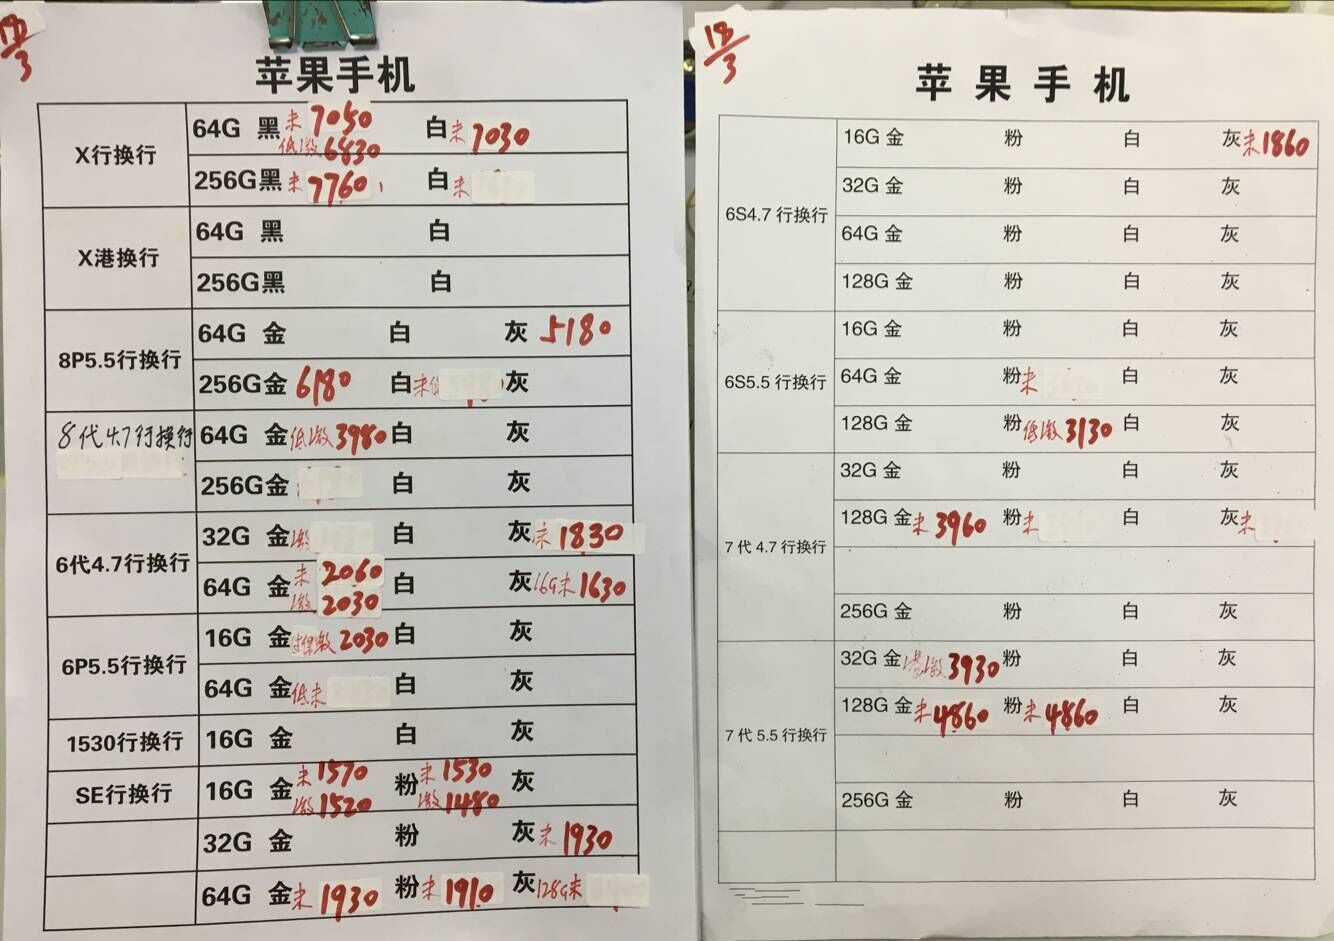 18/3
苹果手机
X行换行
64G 黑 未 7050 白 未 7030
低激 6830
256G黑 未 7760 白 未
X港换行
64G 黑 白
256G黑 白
8P5.5行换行
64G 金 白 灰 5180
256G金 6180 白 未低 灰
8代4.7行换行
64G 金 低激 3980 白 灰
256G金 白 灰
6代4.7行换行
32G 金 激 白 灰 未 1830
64G 金 未 2060 白 灰 16G未 1630
激 2030
6P5.5行换行
16G 金 过保激 2030 白 灰
64G 金 低未 白 灰
1530行换行
16G 金 白 灰
SE行换行
16G 金 未 1570 粉 未 1530 灰
激 1520 激 1480
32G 金 粉 灰 未 1930
64G 金 未 1930 粉 未 1910 灰 128G未
18/3
苹果手机
6S4.7行换行
16G 金 粉 白 灰 未 1860
32G 金 粉 白 灰
64G 金 粉 白 灰
128G 金 粉 白 灰
6S5.5行换行
16G 金 粉 白 灰
64G 金 粉 未 白 灰
128G 金 粉 低激 3130 白 灰
7代4.7行换行
32G 金 粉 白 灰
128G 金 未 3960 粉 未 白 灰 未
256G 金 粉 白 灰
7代5.5行换行
32G 金 港激 3930 粉 白 灰
128G 金 未 4860 粉 未 4860 白 灰
256G 金 粉 白 灰